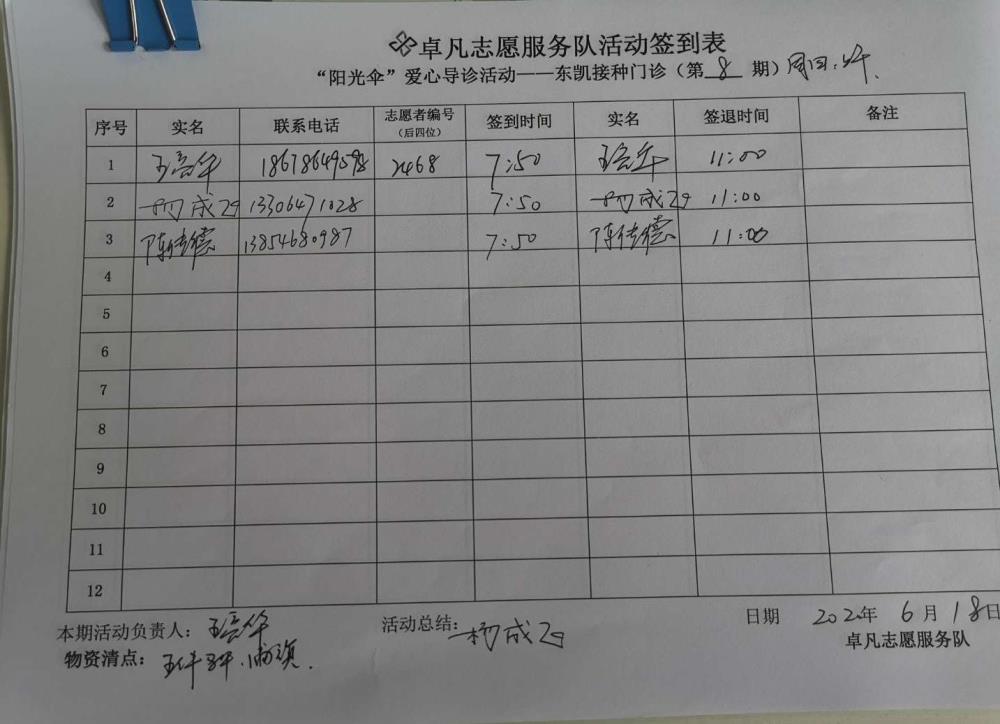 卓凡志愿服务队活动签到表
“阳光伞”爱心导诊活动——东凯接种门诊（第 8 期）
序号 实名 联系电话 志愿者编号（后四位） 签到时间 实名 签退时间 备注
1 18678649598 2468 7:50 11:00
2 13306471028 7:50 11:00
3 陈德 13854680987 7:50 陈德 11:00
4
5
6
7
8
9
10
11
12
本期活动负责人：
活动总结： 杨成
日期 2022年 6月 18日
物资清点：
卓凡志愿服务队